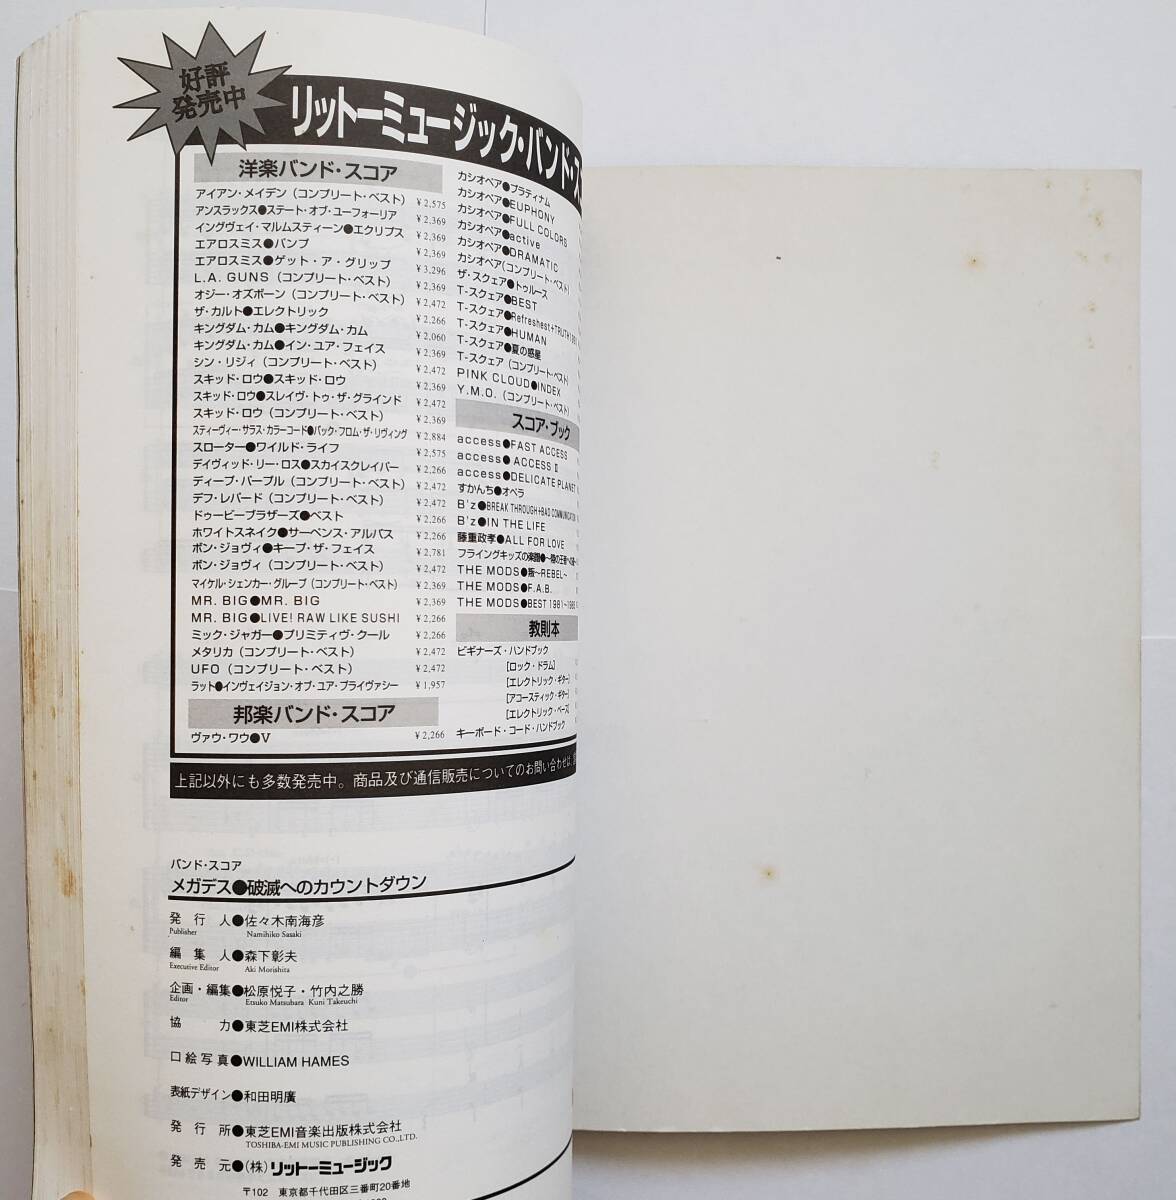 好評
発売中
リットーミュージック・バンド・ス
洋楽バンド・スコア
アイアン・メイデン（コンプリート・ベスト） ¥2,575
アンスラックス●ステート・オブ・ユーフォーリア ¥2,369
イングヴェイ・マルムスティーン●エクリプス ¥2,369
エアロスミス●パンプ ¥2,369
エアロスミス●ゲット・ア・グリップ ¥3,296
L.A. GUNS（コンプリート・ベスト） ¥2,369
オジー・オズボーン（コンプリート・ベスト） ¥2,472
ザ・カルト●エレクトリック ¥2,266
キングダム・カム●キングダム・カム ¥2,060
キングダム・カム●イン・ユア・フェイス ¥2,369
シン・リジィ（コンプリート・ベスト） ¥2,472
スキッド・ロウ●スキッド・ロウ ¥2,369
スキッド・ロウ●スレイヴ・トゥ・ザ・グラインド ¥2,472
スキッド・ロウ（コンプリート・ベスト） ¥2,369
スティーヴィー・サラス・カラーコード●バック・フロム・ザ・リヴィング ¥2,884
スローター●ワイルド・ライフ ¥2,575
デイヴィッド・リー・ロス●スカイスクレイパー ¥2,266
ディープ・パープル（コンプリート・ベスト） ¥2,472
デフ・レパード（コンプリート・ベスト） ¥2,472
ドゥービーブラザーズ●ベスト ¥2,266
ホワイトスネイク●サーペンス・アルバス ¥2,266
ボン・ジョヴィ●キープ・ザ・フェイス ¥2,781
ボン・ジョヴィ（コンプリート・ベスト） ¥2,472
マイケル・シェンカー・グループ（コンプリート・ベスト） ¥2,369
MR. BIG●MR. BIG ¥2,369
MR. BIG●LIVE! RAW LIKE SUSHI ¥2,266
ミック・ジャガー●プリミティヴ・クール ¥2,266
メタリカ（コンプリート・ベスト） ¥2,472
UFO（コンプリート・ベスト） ¥2,472
ラット●インヴェイジョン・オブ・ユア・プライヴァシー ¥1,957
邦楽バンド・スコア
ヴァウ・ワウ●V ¥2,266
カシオペア●プラティナム
カシオペア●EUPHONY
カシオペア●FULL COLORS
カシオペア●active
カシオペア●DRAMATIC
カシオペア（コンプリート・ベスト）
ザ・スクェア●トゥルース
T-スクェア●BEST
T-スクェア●Refreshest+TRUTH1991
T-スクェア●HUMAN
T-スクェア●夏の惑星
T-スクェア（コンプリート・ベスト）
PINK CLOUD●INDEX
Y.M.O.（コンプリート・ベスト）
スコア・ブック
access●FAST ACCESS
access●ACCESS II
access●DELICATE PLANET
すかんち●オペラ
B'z●BREAK THROUGH+BAD COMMUNICATION
B'z●IN THE LIFE
藤重政孝●ALL FOR LOVE
フライングキッズの楽園●〜
THE MODS●叛〜REBEL〜
THE MODS●F.A.B.
THE MODS●BEST 1981〜1985
教則本
ビギナーズ・ハンドブック
［ロック・ドラム］
［エレクトリック・ギター］
［アコースティック・ギター］
［エレクトリック・ベース］
キーボード・コード・ハンドブック
上記以外にも多数発売中。商品及び通信販売についてのお問い合わせは、
バンド・スコア
メガデス●破滅へのカウントダウン
発行人●佐々木南海彦
Publisher Namihiko Sasaki
編集人●森下彰夫
Executive Editor Aki Morishita
企画・編集●松原悦子・竹内之勝
Editor Etsuko Matsubara Kuni Takeuchi
協力●東芝EMI株式会社
口絵写真●WILLIAM HAMES
表紙デザイン●和田明廣
発行所●東芝EMI音楽出版株式会社
TOSHIBA-EMI MUSIC PUBLISHING CO.,LTD.
発売元●（株）リットーミュージック
〒102 東京都千代田区三番町20番地